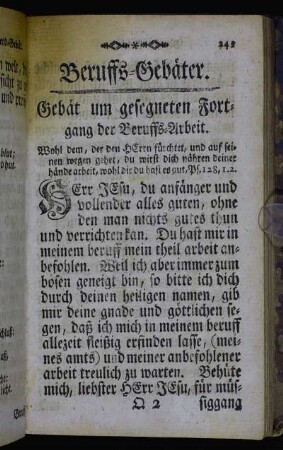 241
Beruffs-Gebäter.
Gebät um gesegneten Fort-
gang der Beruffs-Arbeit.
Wohl dem, der den HErrn fürchtet, und auf sei-
nen wegen gehet, du wirst dich nähren deiner
hände arbeit, wohl dir du hast es gut, Ps. 128, 1. 2.
HErr JEsu, du anfänger und
vollender alles guten, ohne
den man nichts gutes thun
und verrichten kan. Du hast mir in
meinem beruff mein theil arbeit an-
befohlen. Weil ich aber immer zum
bösen geneigt bin, so bitte ich dich
durch deinen heiligen namen, gib
mir deine gnade und göttlichen se-
gen, daß ich mich in meinem beruff
allezeit fleißig erfinden lasse, (mei-
nes amts) und meiner anbefohlener
arbeit treulich zu warten. Behüte
mich, liebster HErr JEsu, für müs-
Q 2 siggang